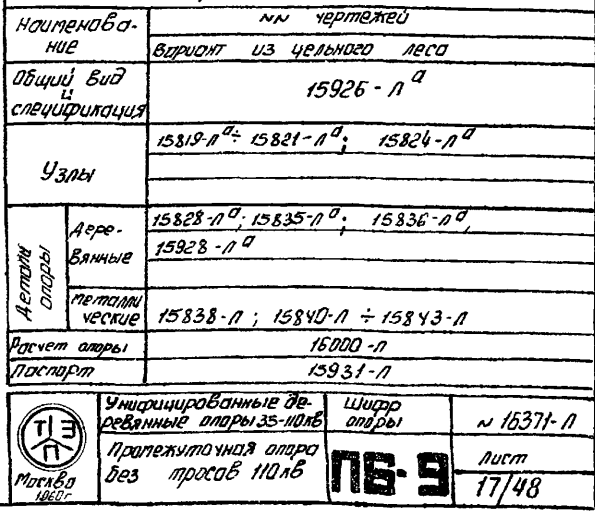 Наименова-
ние
NN чертежей
Вариант из цельного леса
Общий вид
и
спецификация
15926-Лᵃ
Узлы
15819-Лᵃ÷15821-Лᵃ; 15824-Лᵃ
Детали
опоры
Дере-
вянные
15828-Лᵃ; 15835-Лᵃ; 15836-Лᵃ,
15928-Лᵃ
Металли
ческие
15838-Л; 15840-Л ÷ 15843-Л
Расчет опоры
16000-Л
Паспорт
15931-Л
ТЭП
Москва
1960г
Унифицированные де-
ревянные опоры 35-110кв
Промежуточная опора
без тросав 110кв
Шифр
опоры
ПБ-9
N 16371-Л
Лист
17/48